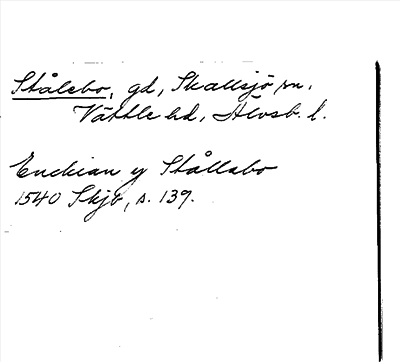 Stålebo, gd, Skallsjö sn,
Vättle hd, Älvsb. l.
Enckian y Stållabo
1540 Skjb, s. 139.